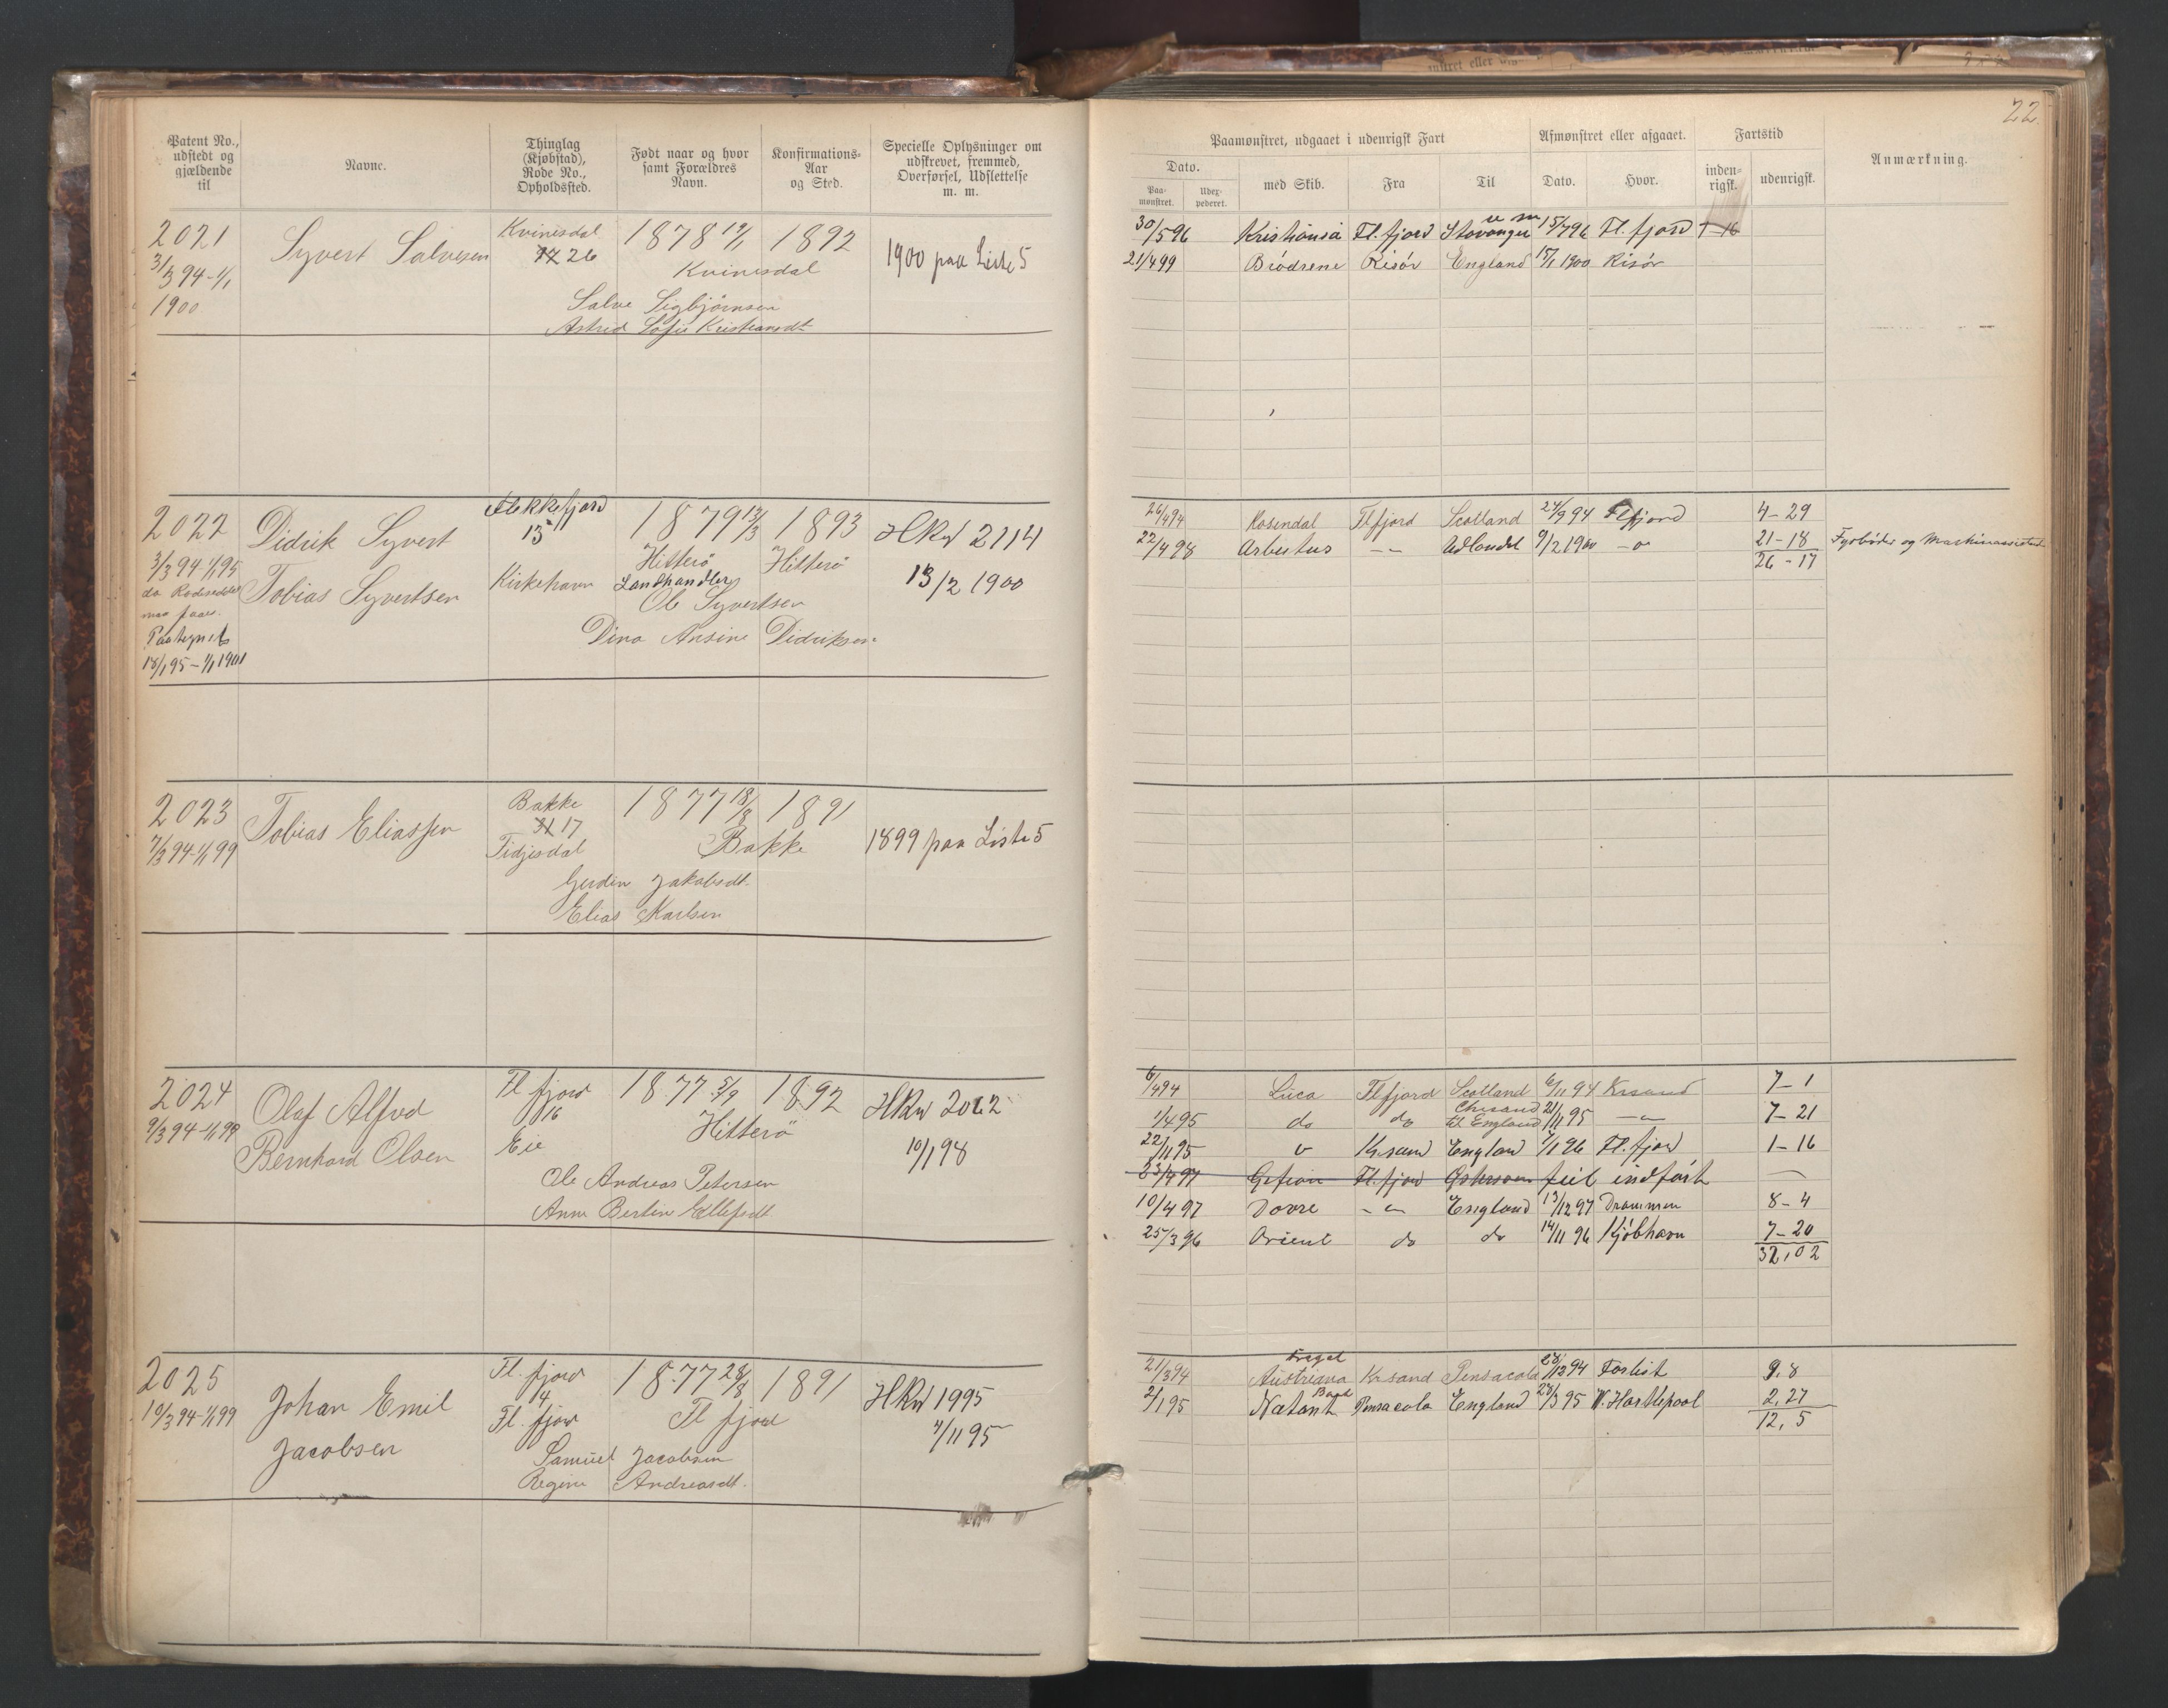 22
Patent No., udstedt og gjældende til
Navne.
Thinglag (Kjøbstad), Rode No., Opholdssted.
Født naar og hvor samt Forældres Navn.
Konfirmations- Aar og Sted.
Specielle Oplysninger om udskrevet, fremmed, Overførsel, Udslettelse m. m.
Paamønstret, udgaaet i udenrigsk Fart
Afmønstret eller afgaaet.
Fartstid
Anmærkning.
Dato.
Paa- mønstret.
Uder- pederet.
med Skib.
Fra
Til
Dato.
Hvor.
inden- rigsk.
udenrigsk.
2021 Syvert Salvesen Kvinesdal 1878 1892
3/3 94 - 1/1 1900
26 Kvinesdal 1900 paa Liste 5
Salve Sigbjørnsen
Astrid Sofie Kristiansdt
30/5 96 Kristiania Fl. fjord Stavanger 15/7 96 Fl. fjord 1-16
21/4 99 Brødrene Risør England 15/1 1900 Risør
2022 Didrik Syvert Tobias Syvertsen Flekkefjord 15 1879 1893 HRw 2114
3/3 94 1/1 95 Hitterø Hitterø 13/2 1900
Kirkehavn Landhandler
Ole Syvertsen
Dina Ansine Didriksen
Paategnet
18/1 95 - 1/1 1901
26/4 94 Rosendal Flfjord Scotland 24/9 94 Flfjord 4-29
22/4 98 Arbutus -"- Udlandet 9/2 1900 -"- 21-18 Fyrbøder og Maskinassistent
26-17
2023 Tobias Eliassen Bakke 17 1877 18/8 1891
7/3 94 - 1/1 99 Tidjesdal Bakke 1899 paa Liste 5
Jakobsdt.
Elias Karlsen
2024 Olaf Alfred Bernhard Olsen Fl fjord 16 1877 5/9 1892 HRw 2012
9/3 94 - 1/1 99 Eie Hitterø 10/1 98
Ole Andreas Petersen
Anne Bertine Ellefsdt
6/4 94 Luca Flfjord Scotland 6/11 94 Krsand 7-1
1/4 95 do do til England 21/11 95 -"- 7-21
22/11 95 " Krsand England 7/1 96 Fl. fjord 1-16
23/4 97 Gefion Fl. fjord feil indført
10/4 97 Dovre -"- England 13/12 97 Drammen 8-4
25/3 96 Orient do do 14/11 96 Kjøbhavn 7-20
32,02
2025 Johan Emil Jacobsen Fl. fjord 14 1877 28/8 1891 HRw 1995
10/3 94 - 1/1 99 Fl. fjord Fl fjord 7/11 95
Samuel Jacobsen
Regine Andreasdt.
21/3 94 Austriana Krsand Pensacola 28/12 94 Forlist 9.8
2/1 95 Natant Bark Pensacola England 28/3 95 W. Hartlepool 2,27
12,5